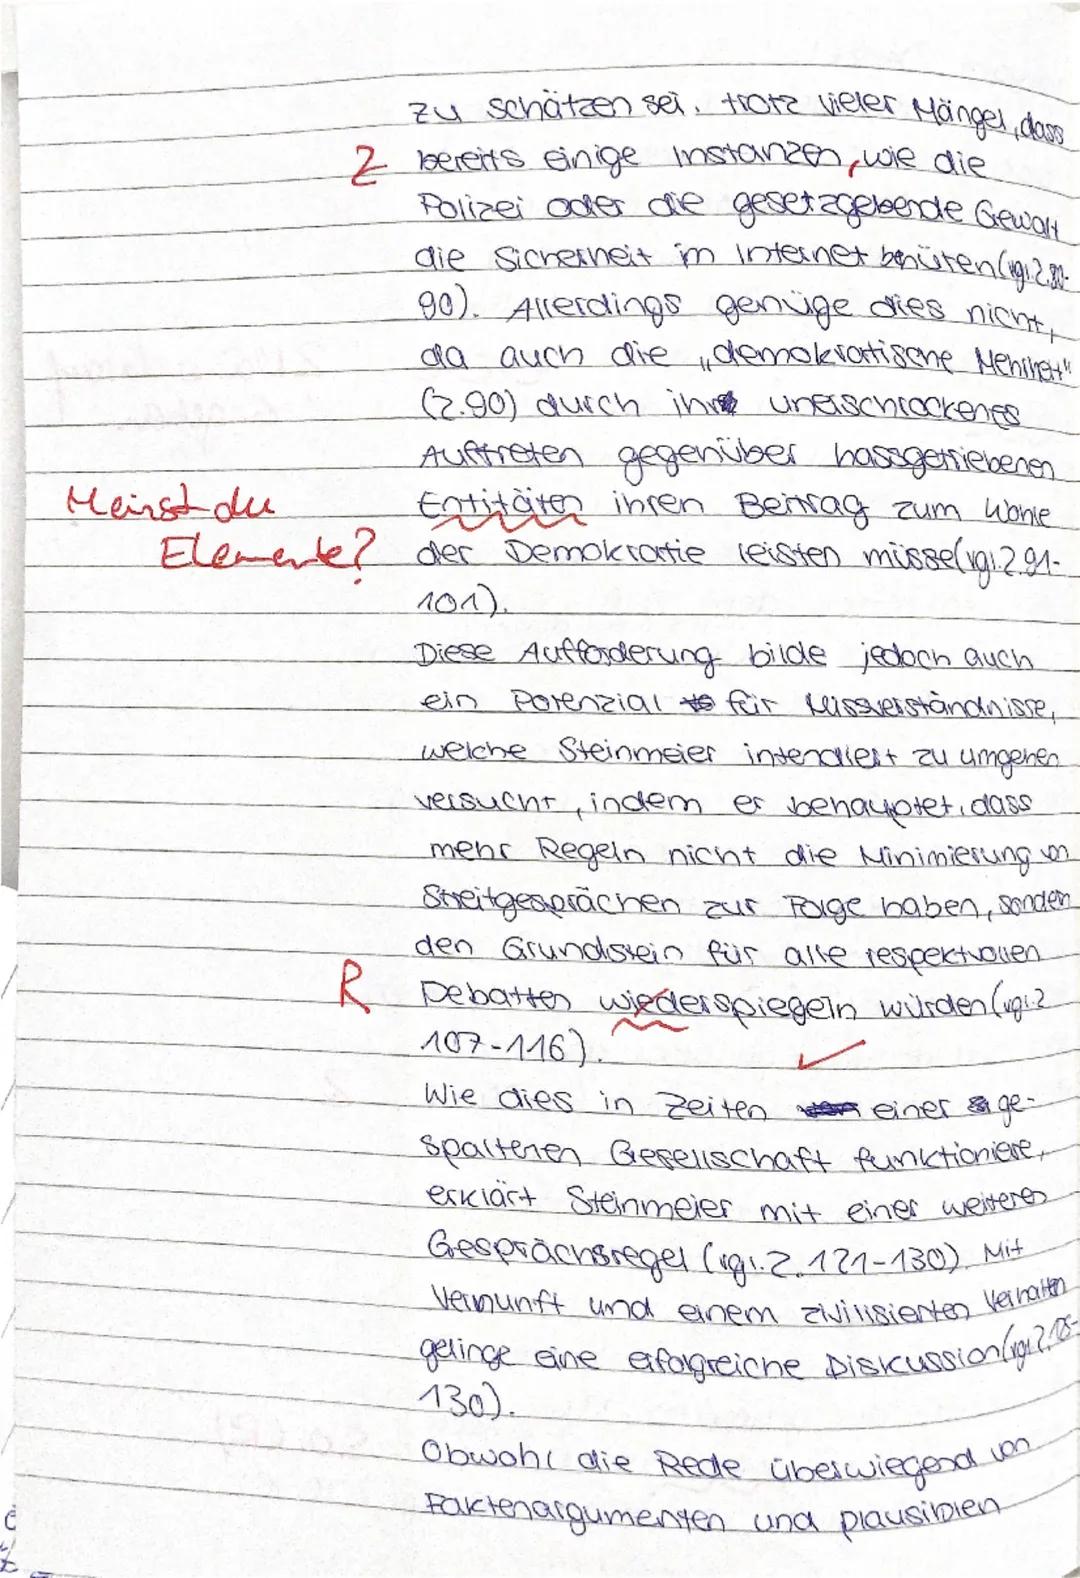 zu schätzen sei, trotz vieler Mängel, dass
Z bereits einige Instanzen, wie die
Polizei oder die gesetzgebende Gewalt
die Sicherheit im Internet behüten (vgl. Z. 80-
90). Allerdings genüge dies nicht,
da auch die „demokratische Mehrheit"
(Z.90) durch ihr unerschrockenes
Auftreten gegenüber hassgetriebenen
Meinst du Entitäten ihren Beitrag zum Wohle
Elemente? der Demokratie leisten müsse (vgl. Z. 91-
101).
Diese Aufforderung bilde jedoch auch
ein Potenzial für Missverständnisse,
welche Steinmeier intendiert zu umgehen
versucht, indem er behauptet, dass
mehr Regeln nicht die Minimierung von
Streitgesprächen zur Folge haben, sondern
den Grundstein für alle respektvollen
R Debatten wiederspiegeln würden (vgl. Z
107-116).
Wie dies in Zeiten einer ge-
spaltenen Gesellschaft funktioniere,
erklärt Steinmeier mit einer weiteren
Gesprächsregel (vgl. Z. 121-130). Mit
Vernunft und einem zivilisierten Verhalten
gelinge eine erfolgreiche Diskussion (vgl. Z.
130).
Obwohl die Rede überwiegend von
Faktenargumenten und plausiblen